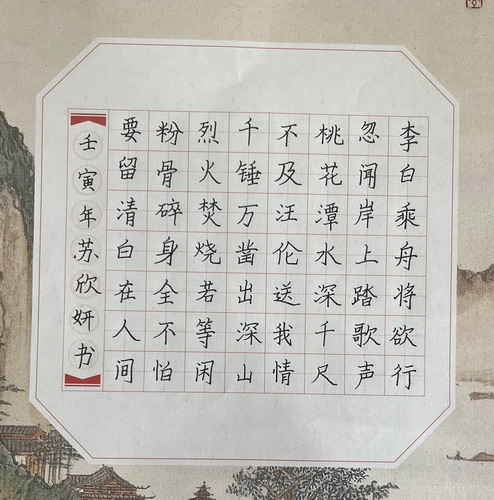 李白乘舟将欲行
忽闻岸上踏歌声
桃花潭水深千尺
不及汪伦送我情
千锤万凿出深山
烈火焚烧若等闲
粉骨碎身全不怕
要留清白在人间
壬寅年苏欣妍书